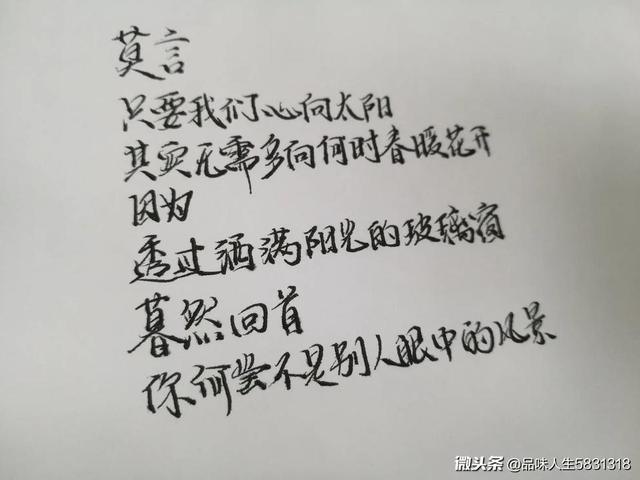 莫言
只要我们心向太阳
其实无需多问何时春暖花开
因为
透过洒满阳光的玻璃窗
暮然回首
你何尝不是别人眼中的风景
微头条 @品味人生5831318